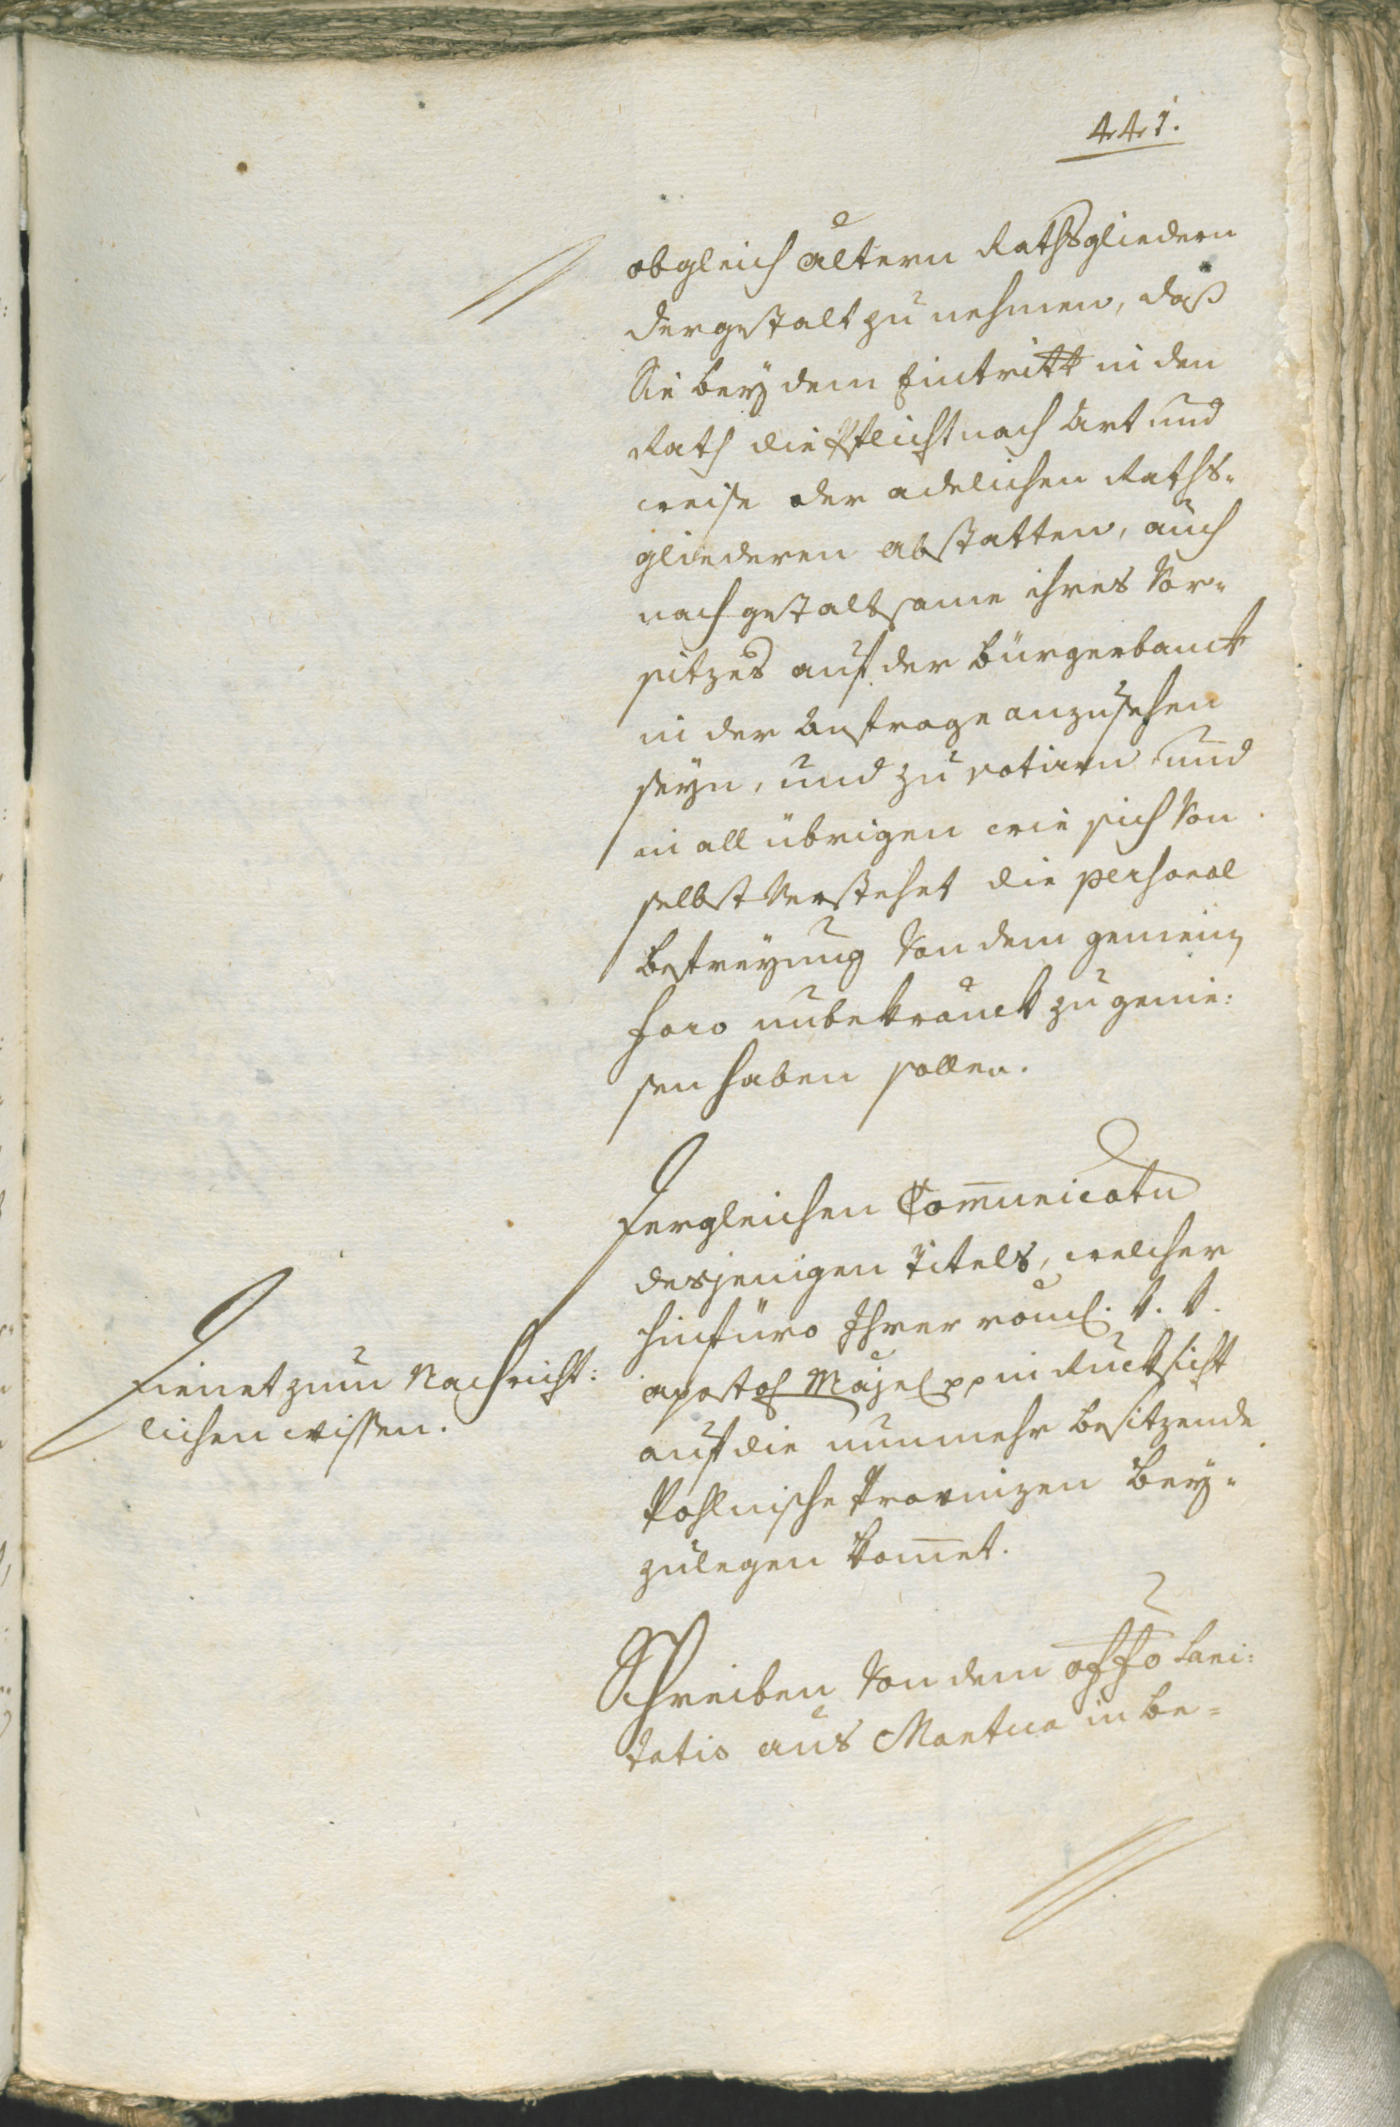 441.
obgleich ältern Rathsgliedern
dergestalt zu nehmen, daß
Sie bey dem Eintritt in den
Rath die Pflicht nach Art und
weise der adelichen Raths-
gliederen abstatten, auch
nach gestaltsame ihres Vor-
sitzes auf der Bürgerbanck
in der Anfrage anzusehen
seyn, und zu votiren und
in all übrigen wie sich Von
selbst Verstehet die personal
befreyung Von dem gemein
foro unbekränckt zu genie:
sen haben sollen.
Dergleichen Com̅unicatu
desjenigen Titels, welcher
hinfüro Ihrer römsch. k. k.
apostol Majes pp in Rucksicht
auf die nunmehr besitzende
Pohlnische Provinzen bey-
zulegen kom̅et.
Dienet zum Nachricht:
lichen wissen.
Schreiben Von dem offo Sani:
tatis aus Mantua in be-